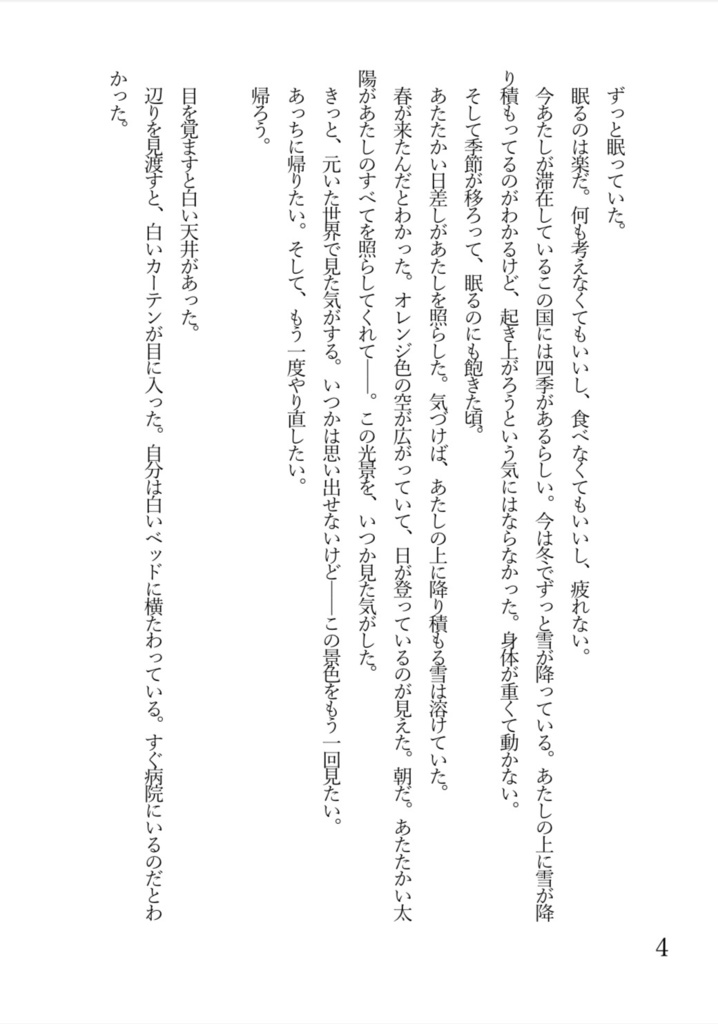 ずっと眠っていた。
眠るのは楽だ。何も考えなくてもいいし、食べなくてもいいし、疲れない。
今あたしが滞在しているこの国には四季があるらしい。今は冬でずっと雪が降っている。あたしの上に雪が降
り積もってるのがわかるけど、起き上がろうという気にはならなかった。身体が重くて動かない。
そして季節が移ろって、眠るのにも飽きた頃。
あたたかい日差しがあたしを照らした。気づけば、あたしの上に降り積もる雪は溶けていた。
春が来たんだとわかった。オレンジ色の空が広がっていて、日が登っているのが見えた。朝だ。あたたかい太
陽があたしのすべてを照らしてくれて――。この光景を、いつか見た気がした。
きっと、元いた世界で見た気がする。いつかは思い出せないけど――この景色をもう一回見たい。
あっちに帰りたい。そして、もう一度やり直したい。
帰ろう。
目を覚ますと白い天井があった。
辺りを見渡すと、白いカーテンが目に入った。自分は白いベッドに横たわっている。すぐ病院にいるのだとわ
かった。
4